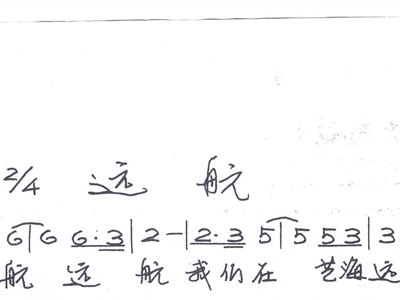 2/4 远 航
6|6 6·3|2-|2·3 5|5 53|3
航 远 航 我们在 艺海远